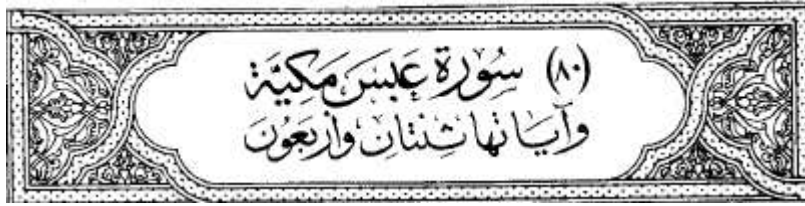 (٨٠) سُورَةِ عَبَسَ مَكِيَّة
وَآيَاتُهَا ثِنْتَانِ وَأَرْبَعُونَ